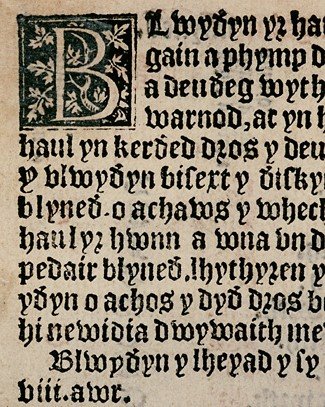 BLwyðyn yr hau
gain a phymp d
a deuðeg wyth
warnod, at yn h
haul yn kerðed dros y deu
y vlwyðyn bisext y ðisky
blyneð. o achaws y whech
haul yr hwnn a wna vn d
pedair blyneð, lhythyren y
yðyn o achos y dyð dros b
hi newidia dwywaith me
Blwyðyn y lheyad y sy
viii. awr.